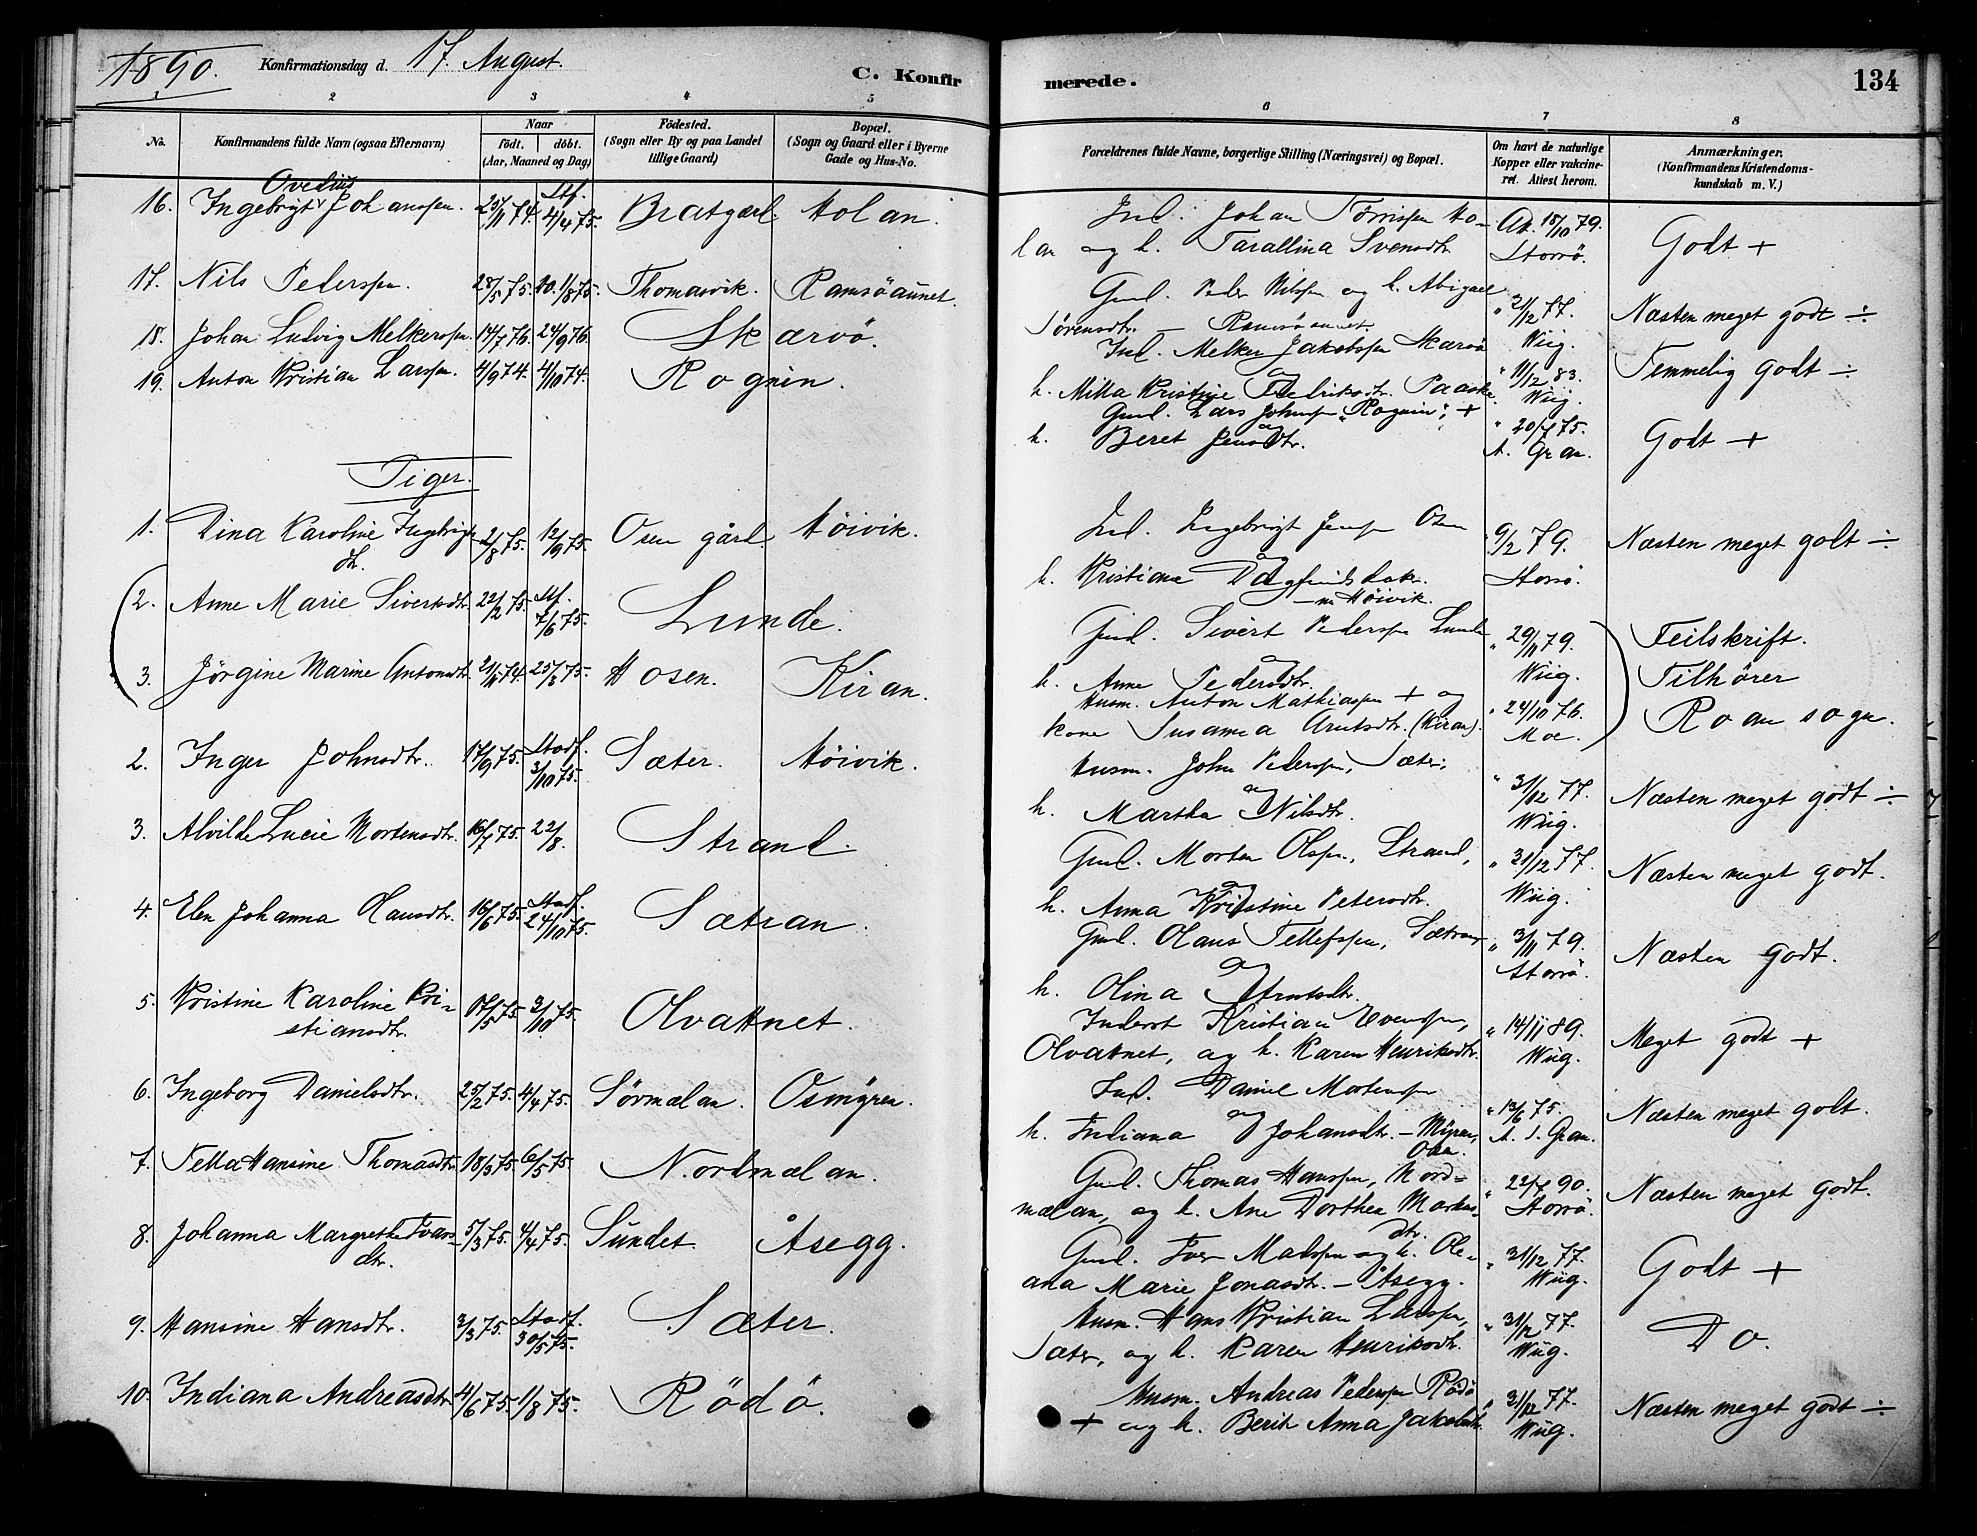 1890. Konfirmationsdag d. 17. August. C. Konfir merede. 134
1 2 3 4 5 6 7 8
No. Konfirmandens fulde Navn (ogsaa Efternavn) Naar födt. döbt. (Aar, Maaned og Dag) Födested. (Sogn eller By og paa Landet tillige Gaard) Bopæl. (Sogn og Gaard eller i Byerne Gade og Hus-No. Forældrenes fulde Navne, borgerlige Stilling (Næringsvei) og Bopæl. Om havt de naturlige Kopper eller vakcineret. Attest herom. Anmærkninger. (Konfirmandens Kristendomskundskab m. V.)
Ovedius
16. Ingebrigt Johanssen. 25/11 74. 4/4 75. Bratgærd. Holan. Ind. Johan Tørrissen Ho-
lan og h. Tarallina Svensdtr. At. 18/10 79. Storrö. Godt +
17. Nils Pederssen. 28/5 75. 20. 1/8 75. Thomasvik. Ramsöaunet. Gmd. Peder Nilssen og h. Abigael
Sørensdtr. — Ramsöaunet. " 31/12 77. Wiig. Næsten meget godt ÷
18. Johan Ludvig Melkerssen. 14/7 76. 24/9 76. Skarvö. Ind. Melker Jakobssen Skarvö
og
h. Milla Kristine Fredriksdtr. Paaske. " 11/12 83. Wiig. Temmelig godt ÷
19. Anton Kristian Larssen. 4/9 74. 4/10 74. Rognin. Gmd. Lars Johnssen "Rognin", +
og
h. Beret Jensdtr. " 20/7 75. A. Gran. Godt +
Piger.
1. Dina Karoline Ingebrigts
dtr. 2/8 75. 12/9 75. Osen gård. Höivik. Ind. Ingebrigt Jenssen Osen
og
h. Kristiana Dagfinsdatr.
— nu Höivik. " 9/2 79. Storrö. Næsten meget godt ÷
2. Anne Marie Sivertsdtr. 22/2 75. 7/6 75. Lunde. Gmd. Sivert Pederssen Lunde
og
h. Anne Pedersdtr. " 29/11 79. Wiig. Feilskrift.
3. Jørgine Marine Antonsdtr. 21/11 74. 25/3 75. Hosen. Kiran. Husm. Anton Mathiassen + og
kone Susanna Arntsdtr. (Kiran). " 24/10 76. Moe. Tilhører
Roan sogn.
2. Inger Johnsdtr. 17/9 75. Stadf. 3/10 75. Sæter. Höivik. Husm. John Pederssen, Sæter,
og
h. Martha Nilsdtr. " 31/12 77. Wiig. Næsten meget godt ÷
3. Alvilde Lucie Mortensdtr. 16/7 75. 22/8. Strand. Gmd. Morten Olssen, Strand,
og
h. Anna Kristine Petersdtr. " 31/12 77. Wiig. Næsten meget godt.
4. Elen Johanna Hansdtr. 16/6 75. Stadf. 24/10 75. Sætran. Gmd. Olaus Tellefssen, Sætran,
og
h. Olina Arntsdtr. " 3/11 79. Storrö. Næsten godt.
5. Kristine Karoline Kri-
stiansdtr. /5 75. 3/10 75. Olvattnet. Inderst Kristian Evenssen,
Olvatnet, og h. Karen Henriksdtr. " 14/11 89. Wiig. Meget godt +
6. Ingeborg Danielsdtr. 25/2 75. 4/4 75. Sörmælan. Osmyren. Ind. Daniel Mortenssen
og
h. Indiana Johansdtr. — Myren,
Osen. " 13/6 75. A. J. Gran. Næsten meget godt.
7. Tella Hansine Thomasdtr. 18/3 75. 6/5 75. Nordmælan. Gmd. Thomas Hanssen, Nord-
mælan, og h. Ane Dorthea Markus-
dtr. " 22/7 90. Storrö. Næsten meget godt.
8. Johanna Margrethe Ivars-
dtr. 5/3 75. 4/4 75. Sundet. Åsegg. Gmd. Iver Madssen og h. Ole-
ana Marie Jonasdtr. — Åsegg. " 31/12 77. Wiig. Godt +
9. Hansine Hansdtr. 3/3 75. Stadf. 30/5 75. Sæter. Husm. Hans Kristian Larssen,
Sæter, og h. Karen Henriksdtr. " 31/12 77. Wiig. Do.
10. Indiana Andreasdtr. 4/6 75. 1/8 75. Rödö. Husm. Andreas Pederssen Rödö
+ og h. Berit Anna Jakobsdtr. " 31/12 77. Wiig. Næsten meget godt ÷